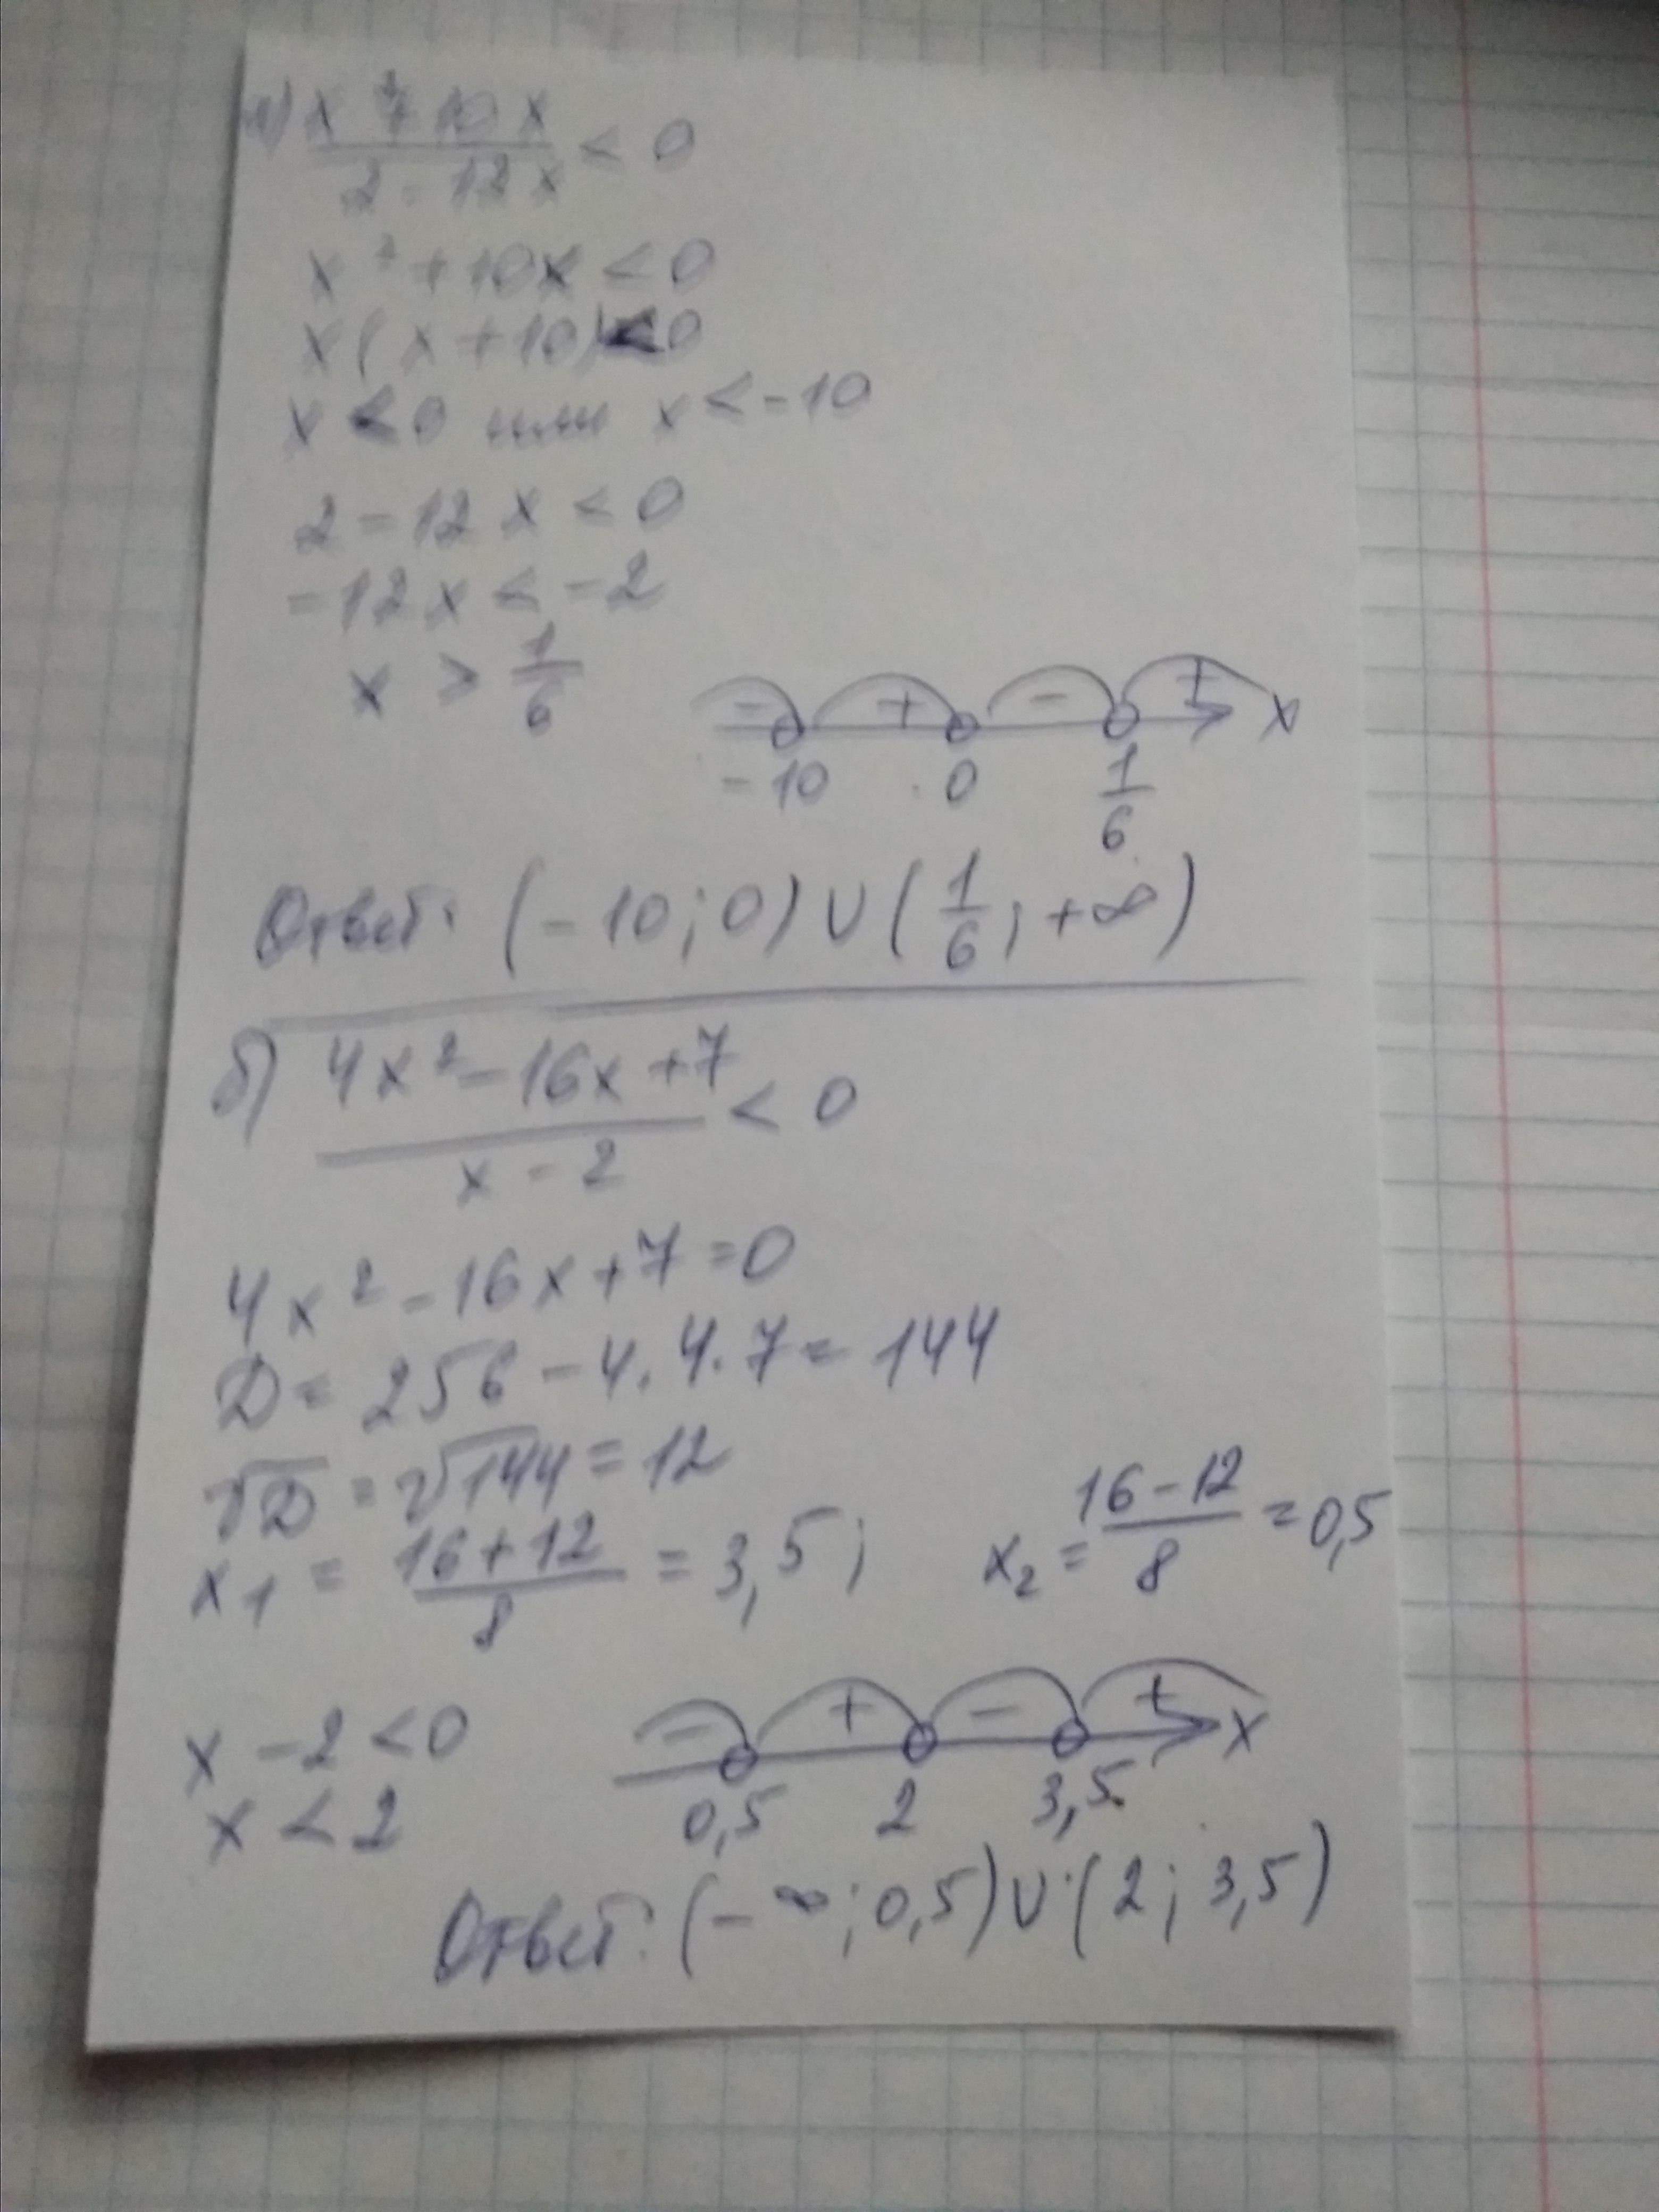 а) (x² + 10x)/(2 - 12x) < 0
x² + 10x < 0
x(x + 10) < 0
x < 0 или x < -10
2 - 12x < 0
-12x < -2
x > 1/6
- + - + x
-10 0 1/6
Ответ: (-10; 0) ∪ (1/6; +∞)
б) (4x² - 16x + 7)/(x - 2) < 0
4x² - 16x + 7 = 0
D = 256 - 4·4·7 = 144
√D = √144 = 12
x₁ = (16 + 12)/8 = 3,5; x₂ = (16 - 12)/8 = 0,5
x - 2 < 0
x < 2
- + - + x
0,5 2 3,5
Ответ: (-∞; 0,5) ∪ (2; 3,5)